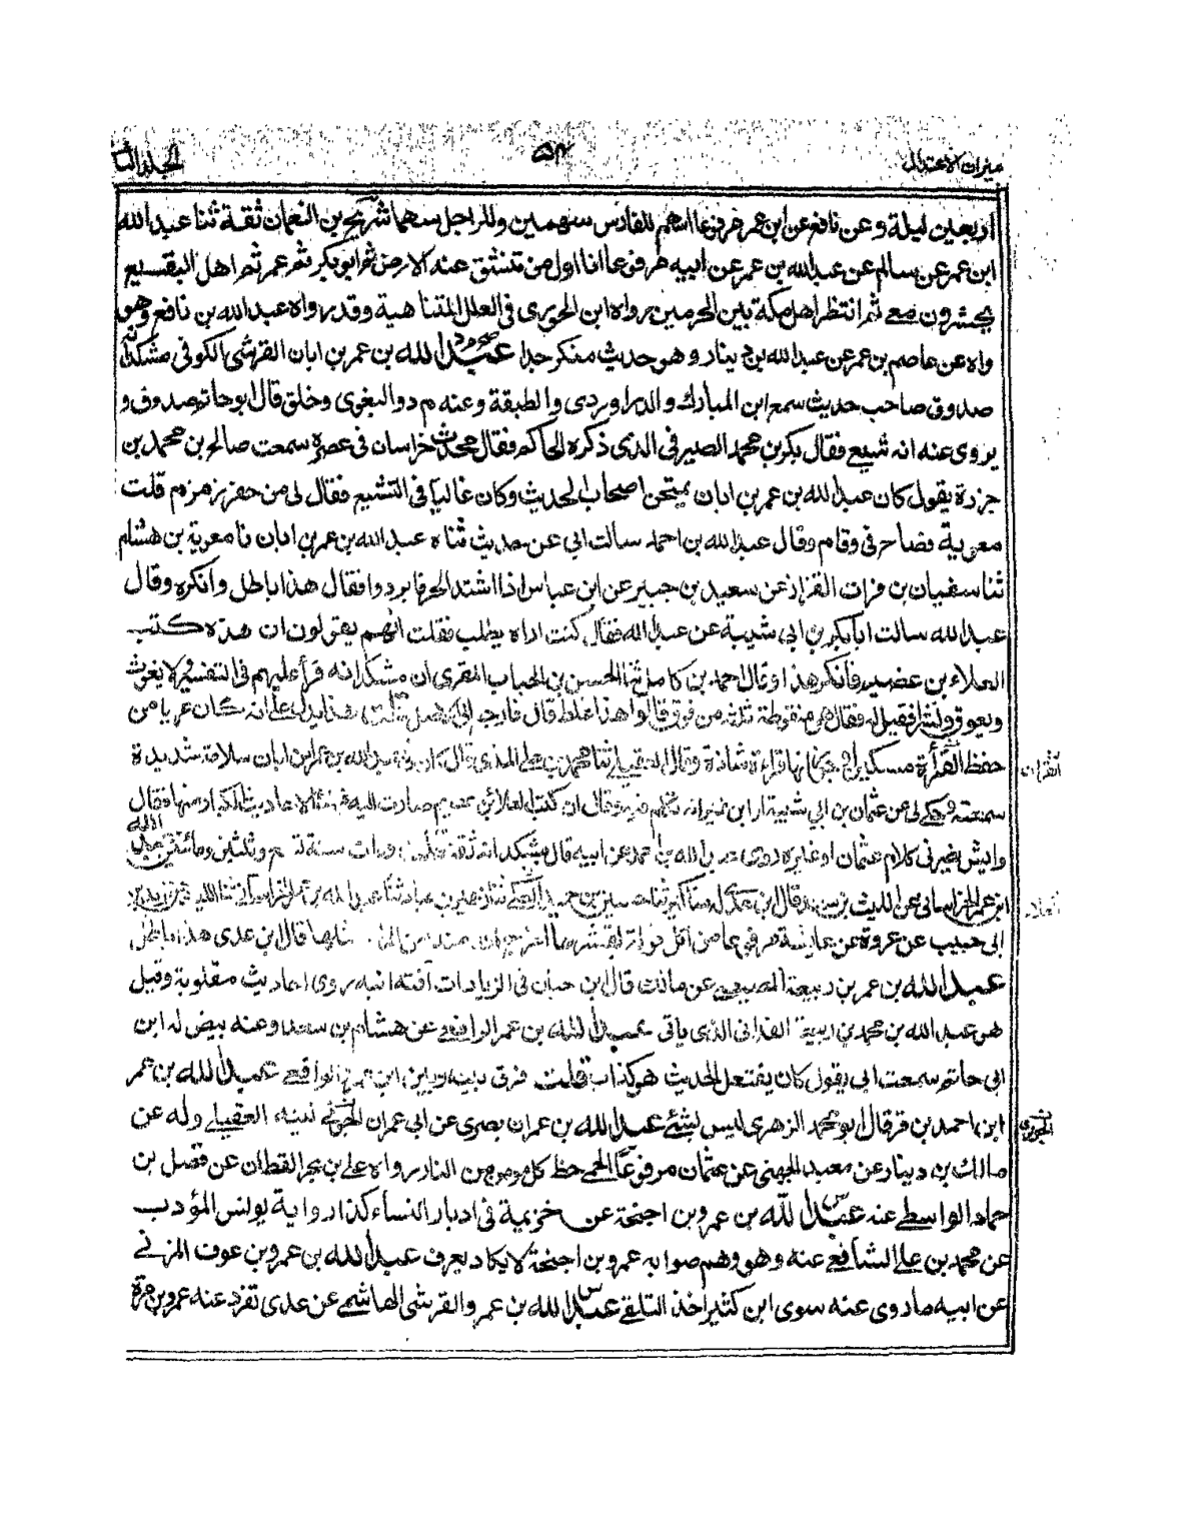 ميزان الاعتدال ٥٤ الجلد الثا
اربعين ليلة وعن نافع عن ابن عمر مرفوعا اسهم للفارس سهمين وللراجل سهما شريح بن النعمان ثقة ثنا عبد الله
ابن عمر عن سالم عن عبد الله بن عمر عن ابيه مرفوعا انا اول من تنشق عنه الارض ثم ابو بكر ثم عمر ثم اهل البقيع
يحشرون معي ثم انتظر اهل مكة بين الحرمين رواه ابن الجوزى فى العلل المتناهية وقد رواه عبد الله بن نافع وهو
واه عن عاصم بن عمر عن عبد الله بن دينار وهو حديث منكر جدا عبد الله بن عمر بن ابان القرشى الكوفى مشكدانه
صدوق صاحب حديث سمع ابن المبارك والدراوردى والطبقة وعنه م د والبغوى وخلق قال ابو حاتم صدوق و
يروى عنه انه شيع فقال بكر بن محمد الصيرفى الذى ذكره الحاكم فقال محدث خراسان فى عصره سمعت صالح بن محمد بن
جزرة يقول كان عبد الله بن عمر بن ابان يمتحن اصحاب الحديث وكان غاليا فى التشيع فقال لى من حفر بئر زمزم قلت
معوية فصاح فى وقام وقال عبد الله بن احمد سالت ابى عن حديث ثناه عبد الله بن عمر بن ابان نا معوية بن هشام
ثنا سفيان بن فرات القزاز عن سعيد بن جبير عن ابن عباس اذا اشتد الحر فابردوا فقال هذا باطل وانكره وقال
عبد الله سالت ابا بكر بن ابى شيبة عن عبد الله فقال كنت اراه يطلب فقلت انهم يقولون ان هذه كتب
العلاء بن عضيم فانكر هذا وقال احمد بن كامل ثنا الحسن بن الحباب المقرى ان مشكدانه قرأ عليهم فى التفسير ولا يغوث
ويعوق ونشرا فقيل له فقال هى منقوطة ثلثة من فوق قالوا هذا غلط قال فارجع الى الاصل قلت هذا يدل على انه كان عريا من
حفظ القرأة مسكين وقال العقيلى ثنا محمد بن على المذى قال كان فى عبد الله بن عمر بن ابان سلامة شديدة
القران
سمعته وحكى لى عن عثمان بن ابى شيبة او ابن نمير انه تكلم فيه وقال ان كتب العلاء بن عضيم صارت اليه الاحاديث الكبار منها فقال
وايش يضر فى كلام عثمان او غيره روى عبد الله بن احمد عن ابيه قال مشكدانه ثقة مات سنة تسع وثلثين ومائتين عبد الله
ابن عمر الخراسانى عن الليث بن سعد قال ابن عدى له مناكير
ابى حبيب عن عروة عن عايشة مرفوعا من اكل فولة بقشرها اخرج الله منه من الداء مثلها قال ابن عدى هذا باطل
عبد الله بن عمر بن ربيعة المصيصى عن مالك قال ابن حبان فى الزيادات آفته انه روى احاديث مقلوبة وقيل
هو عبد الله بن محمد بن ربيعة القدامى الذى ياتى عبد الله بن عمر الواقعى عن هشام بن سعد وعنه بيض له ابن
ابى حاتم سمعت ابى يقول كان يفتعل الحديث هو كذاب قلت فرق بينه وبين ابن عمرو الواقعى عبد الله بن عمر
ابن احمد بن قرقال ابو محمد الزهرى ليس بشئ عبد الله بن عمران بصرى عن ابى عمران الجونى لينه العقيلى وله عن
الجونى
مالك بن دينار عن معبد الجهنى عن عثمان مرفوعا الحمى حظ كل مومن من النار رواه على بن بحر القطان عن فضل بن
حماد الواسطى عنه عبد الله بن عمرو بن اجنحة عن خزيمة فى ادبار النساء كذا رواية يونس المؤدب
عن محمد بن على الشافعى عنه وهو وهم صوابه عمرو بن اجنحة لا يكاد يعرف عبد الله بن عمرو بن عوف المزنى
عن ابيه ما روى عنه سوى ابن كثير احد التلقى عبد الله بن عمرو القرشى الهاشمى عن عدى تفرد عنه عمرو بن مرة